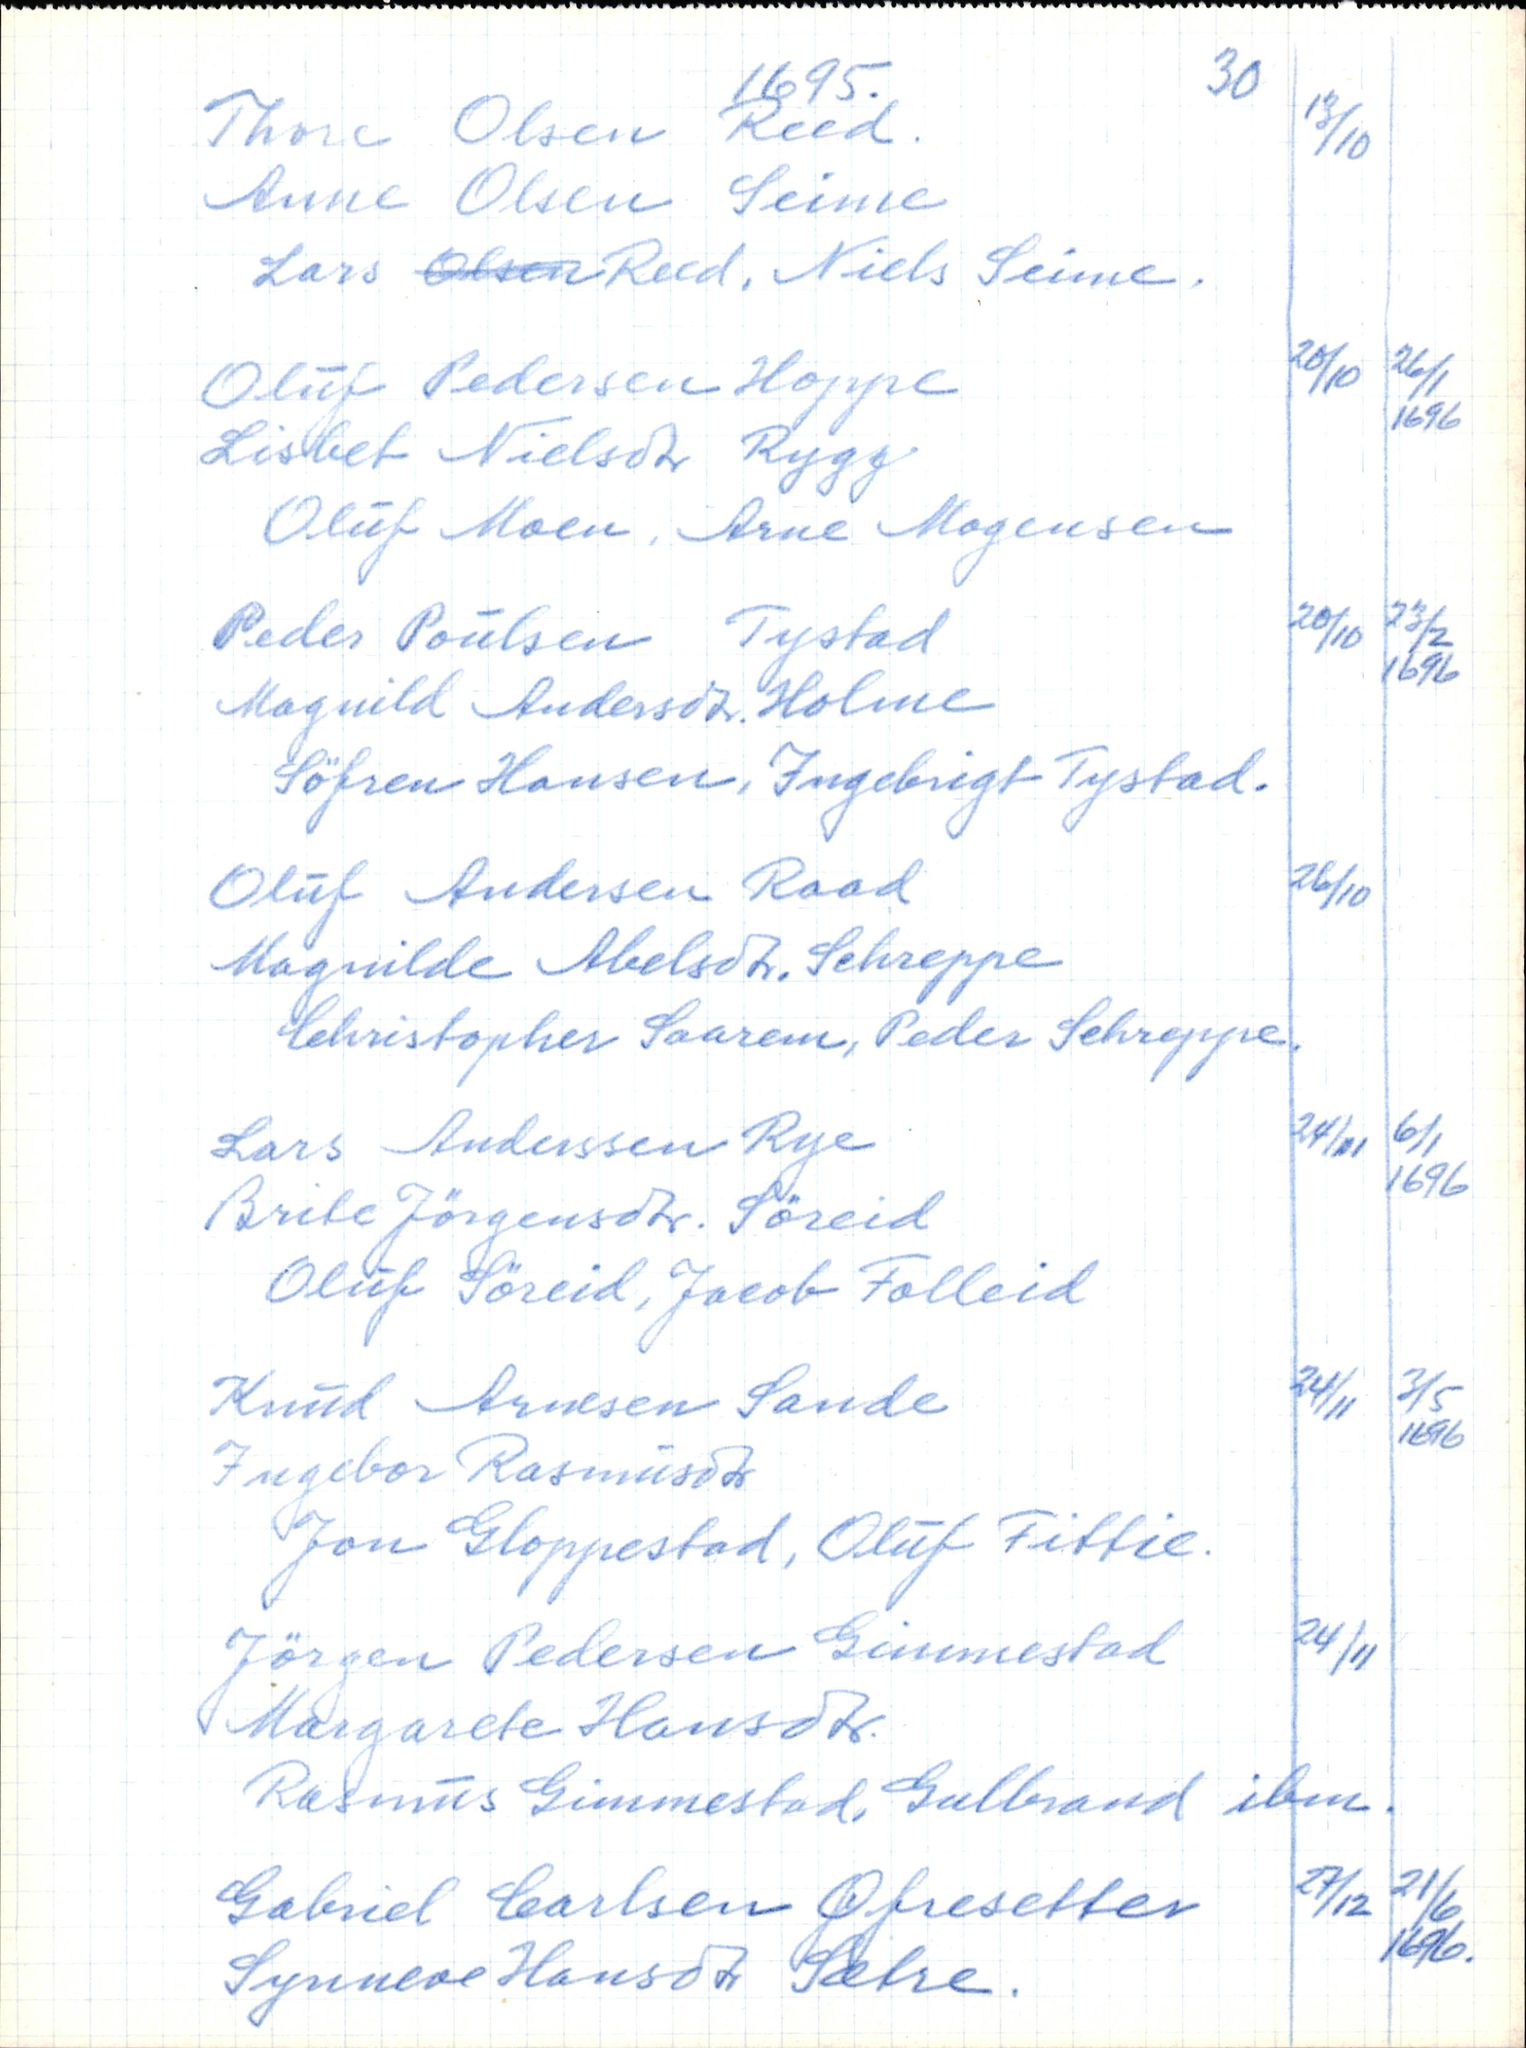 1695. 30
Thore Olsen Reed. 13/10
Anne Olsen Seime
Lars Olsen Reed, Niels Seime.
Olŭf Pedersen Hoppe 20/10 26/1
1696
Lisbet Nielsdtr Rygg
Olŭf Moen, Arne Mogensen
Peder Poŭlsen Tystad 20/10 23/2
1696
Magnild Andersdtr. Holme
Söfren Hansen, Ingebrigt Tystad.
Olŭf Andersen Raad 26/10
Magnilde Abelsdtr. Schreppe
Christopher Saarem, Peder Schreppe.
Lars Anderssen Rye 24/11 6/1
1696
Brite Jörgensdtr. Söreid
Olŭf Söreid, Jacob Folleid
Knŭd Arnesen Sande 24/11 3/5
1696
Ingebor Rasmŭsdtr
Jon Gloppestad, Olŭf Fittie.
Jörgen Pedersen Gimmestad 24/11
Margarete Hansdtr.
Rasmŭs Gimmestad, Gulbrand ibm.
Gabriel Carlsen Ofresetter 27/12 21/6
1696.
Synneve Hansdtr Sætre.